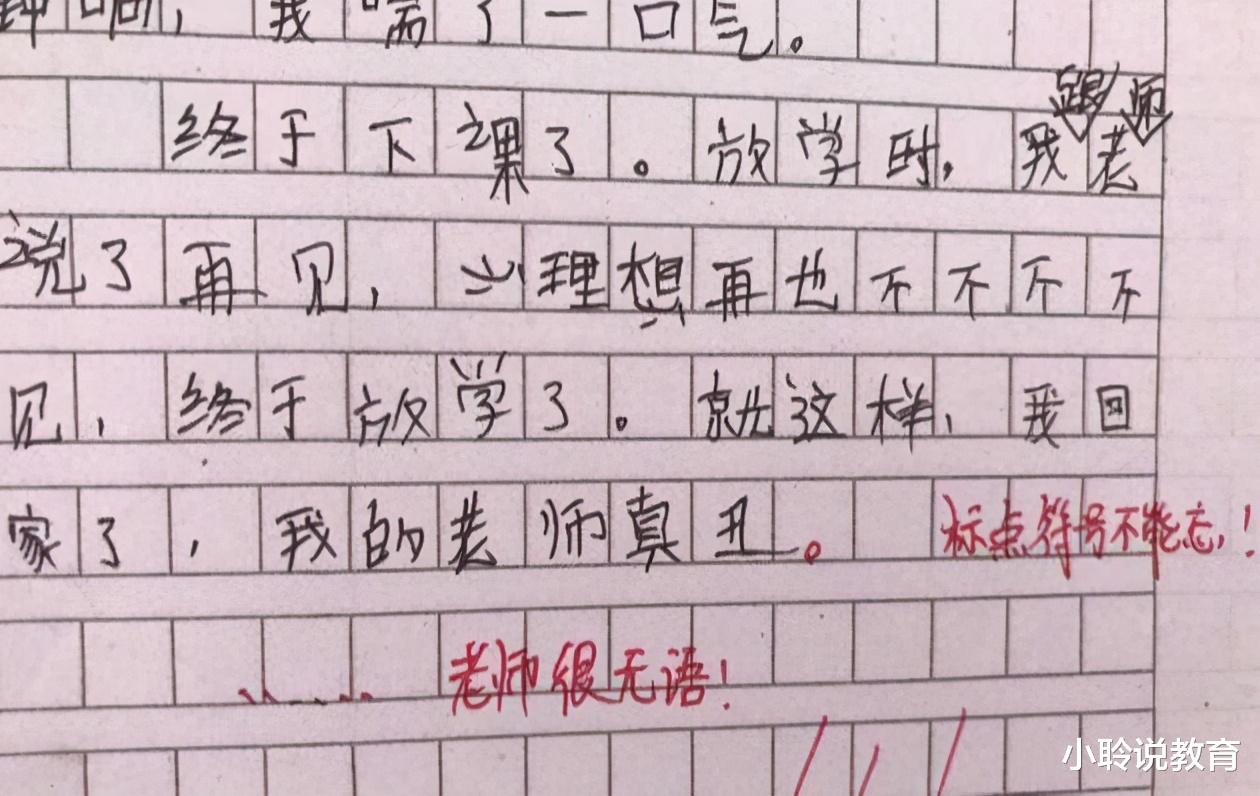 钟响，我喘了一口气。
跟 师
终于下课了。放学时，我老
说了再见，心理想再也不不不不
见，终于放学了。就这样，我回
家了，我的老师真丑。 标点符号不能忘！
...... 老师很无语！
小聆说教育